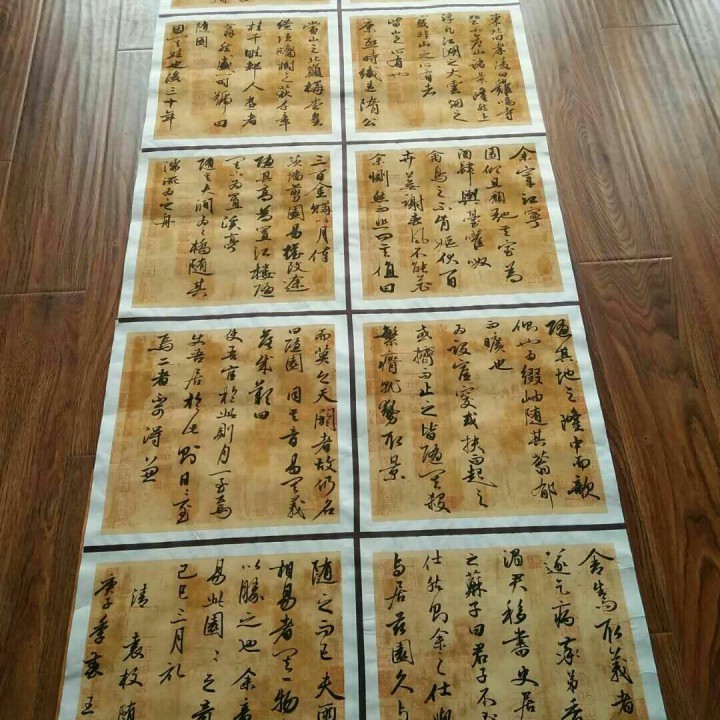 東北曰孝陵曰雞鳴寺
登小倉山諸景隆然上
浮凡江湖之大雲烟之
變非山之所有者
皆山之所有也
康熙時織造隋公
當山之北巔構堂皇
繚垣牖樹之荻千章
桂千畦都人遊者
翕然盛一時號曰
隨園
因其姓也後三十年
余宰江寧
園傾且頹弛其室為
酒肆輿臺嚾呶
禽鳥之不肯嫗伏百
卉蕪謝春風不能花
余惻然而悲問其值曰
三百金購以月俸
茨墻剪園易檐改途
隨其高為置江樓隨
其下為置溪亭
隨其夾澗為之橋隨其
湍流為之舟
隨其地之隆中而欹
側也為綴岫隨其蓊郁
而曠也
為設宧窔或扶而起之
或擠而止之皆隨其殺
繁瘠就勢取景
而莫之夭閼者故仍名
曰隨園同其音易其義
落成歎曰
使吾官於此則月一至焉
使吾居於此則日日至
焉二者不可得兼
舍官而取義者
遂乞病率弟香
湄君移書史居
之蘇子曰君子不必
仕然則余之仕與
與居茲園久與
隨之而已夫兩
相易者其一物
以勝之也余竟
易此園園之奇
己巳三月記
清袁枚隨
庚子年書王